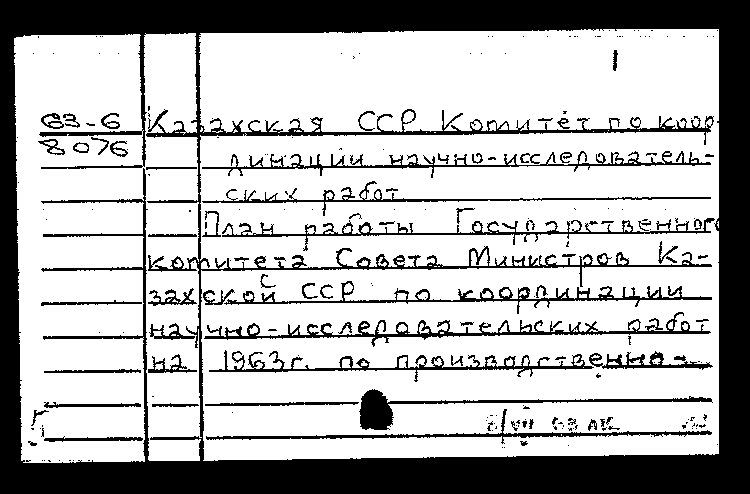 1
63-6 Казахская ССР Комитет по коор-
8076 динации научно-исследователь-
ских работ
План работы Государственного
комитета Совета Министров Ка-
захской ССР по координации
научно-исследовательских работ
на 1963г. по производственно-
5
8/VII 63